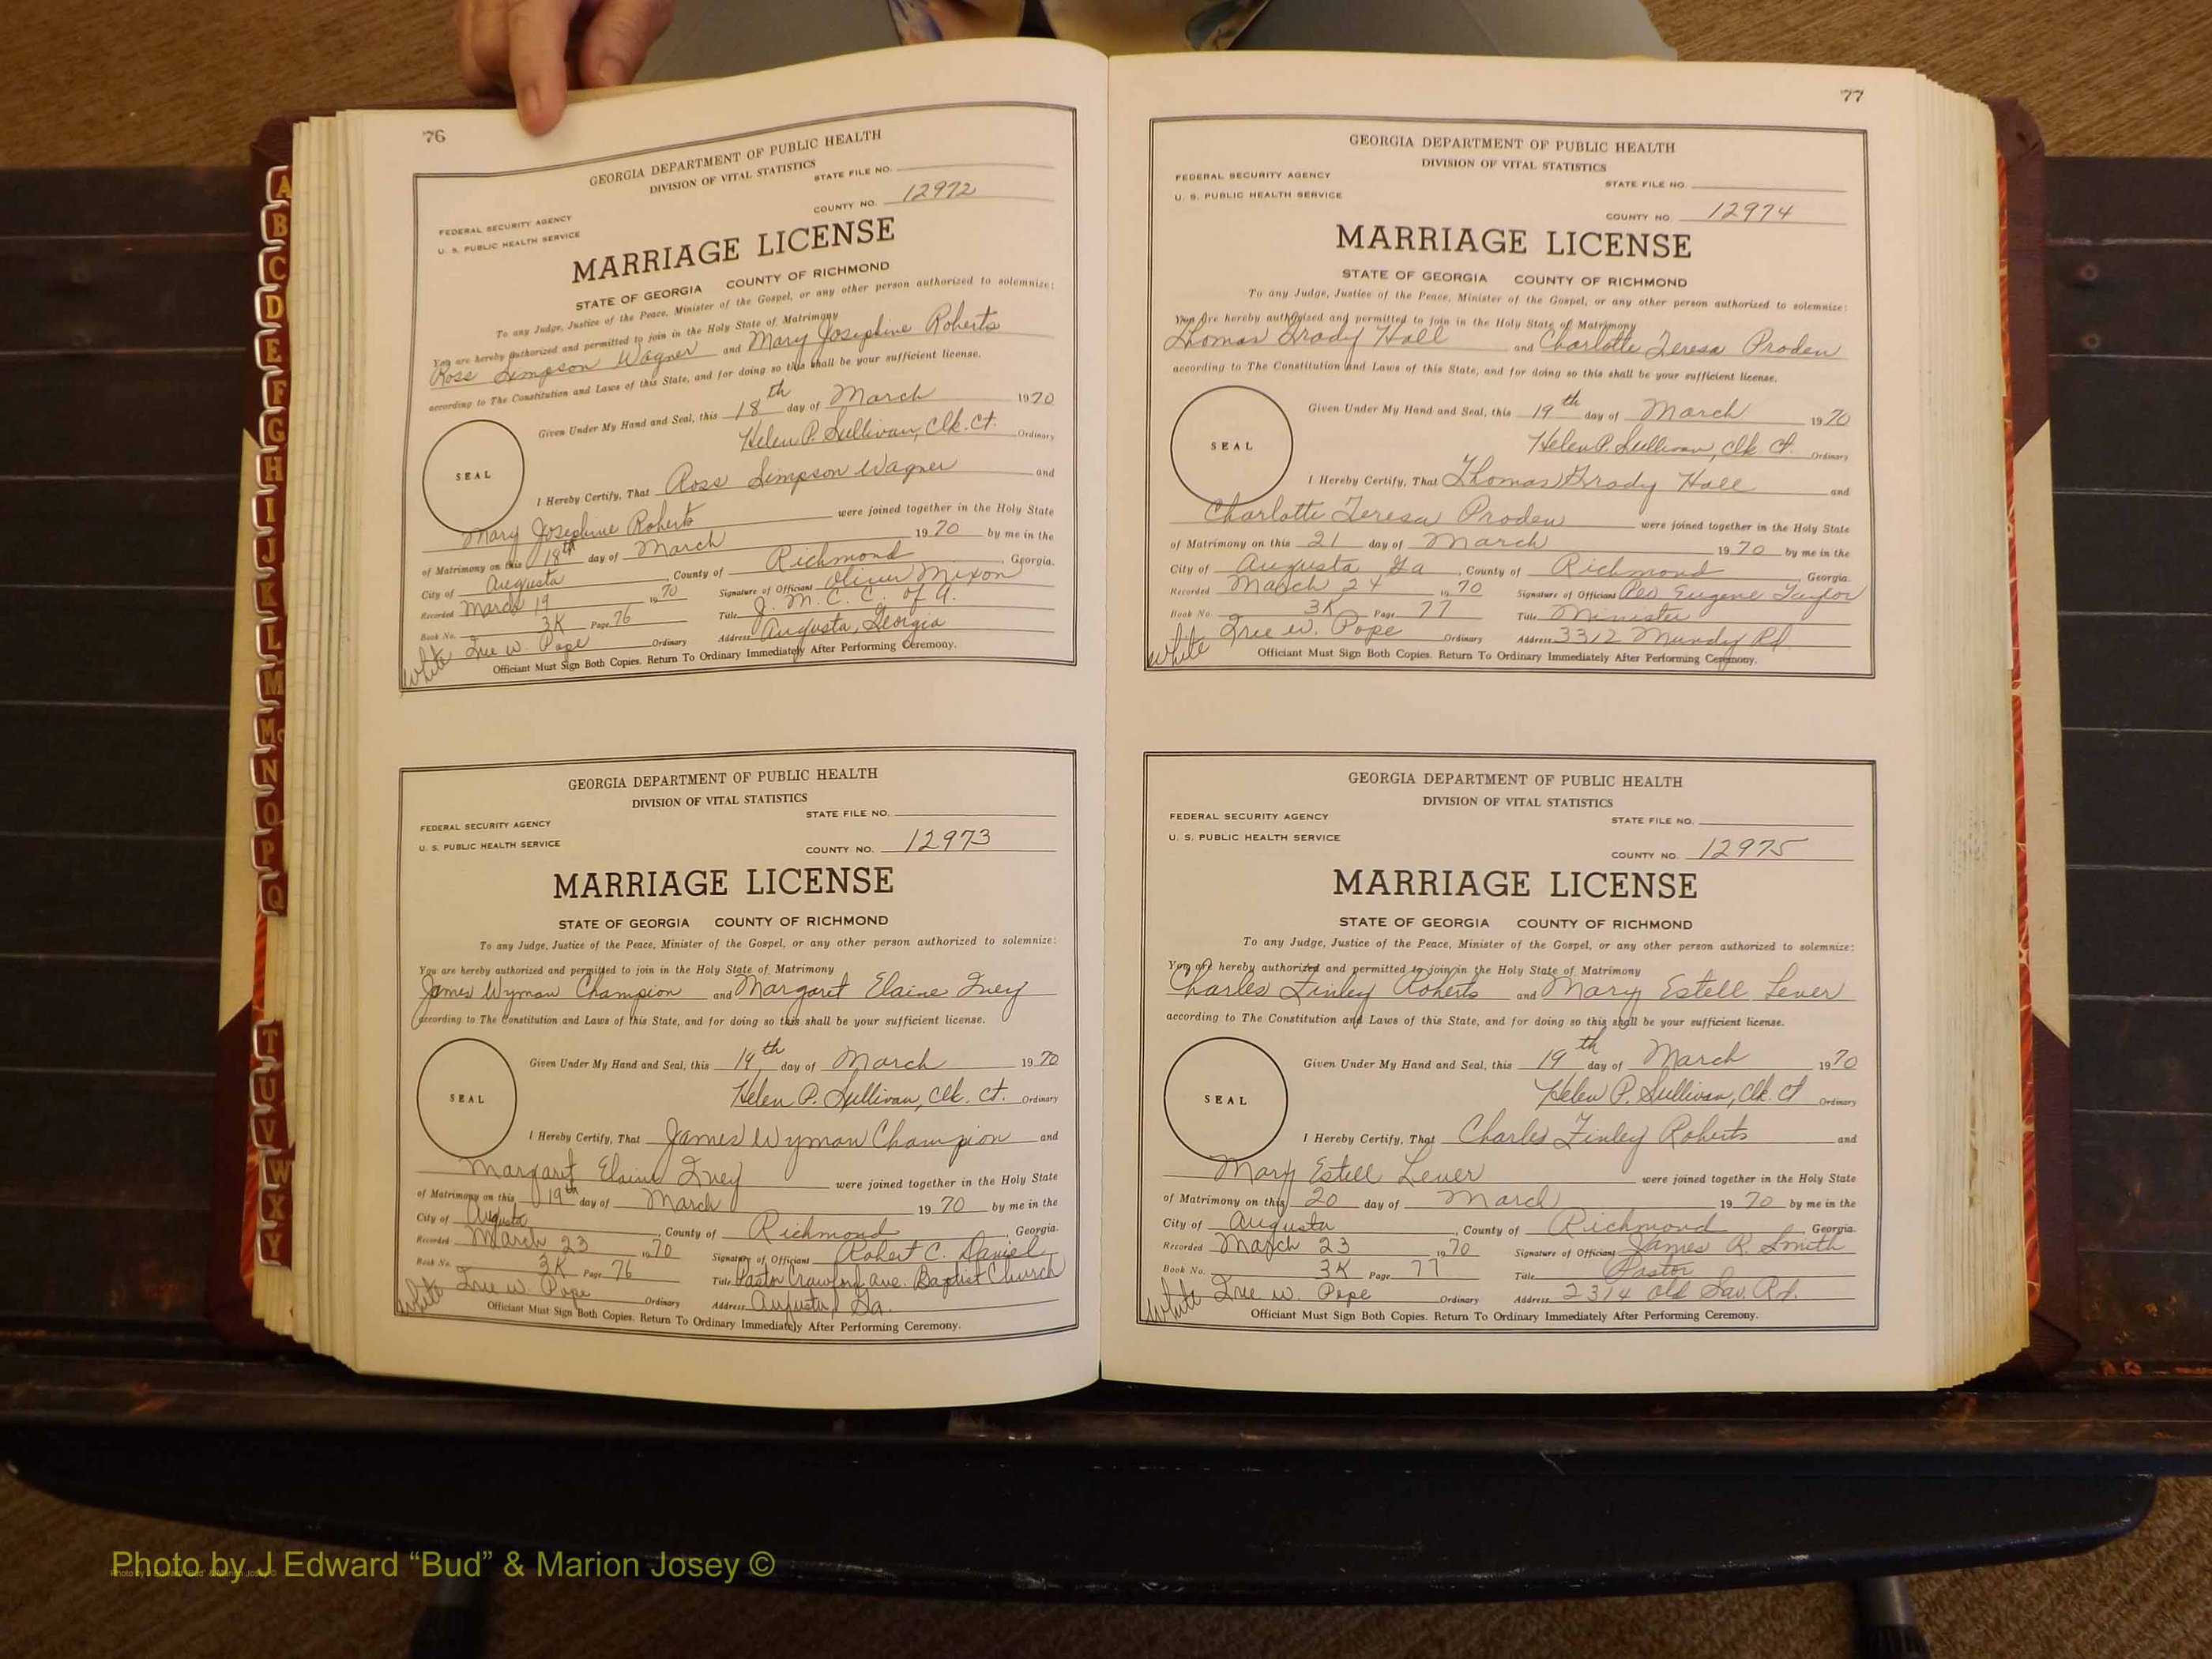 76
GEORGIA DEPARTMENT OF PUBLIC HEALTH
DIVISION OF VITAL STATISTICS
STATE FILE NO.
FEDERAL SECURITY AGENCY
U. S. PUBLIC HEALTH SERVICE
COUNTY NO. 12972
MARRIAGE LICENSE
STATE OF GEORGIA COUNTY OF RICHMOND
To any Judge, Justice of the Peace, Minister of the Gospel, or any other person authorized to solemnize:
You are hereby authorized and permitted to join in the Holy State of Matrimony
Ross Simpson Wagner and Mary Josephine Roberts
according to The Constitution and Laws of this State, and for doing so this shall be your sufficient license.
Given Under My Hand and Seal, this 18th day of March 1970
Helen P. Sullivan, Clk. Ct. Ordinary
SEAL
I Hereby Certify, That Ross Simpson Wagner and
Mary Josephine Roberts were joined together in the Holy State
of Matrimony on this 18th day of March 1970 by me in the
City of Augusta, County of Richmond, Georgia.
Recorded March 19 1970 Signature of Officiant Oliver Mixon
Book No. 3K Page 76 Title J. M. C. C. of A.
Inee W. Pope Ordinary Address Augusta, Georgia
White Officiant Must Sign Both Copies. Return To Ordinary Immediately After Performing Ceremony.
GEORGIA DEPARTMENT OF PUBLIC HEALTH
DIVISION OF VITAL STATISTICS
STATE FILE NO.
FEDERAL SECURITY AGENCY
U. S. PUBLIC HEALTH SERVICE
COUNTY NO. 12973
MARRIAGE LICENSE
STATE OF GEORGIA COUNTY OF RICHMOND
To any Judge, Justice of the Peace, Minister of the Gospel, or any other person authorized to solemnize:
You are hereby authorized and permitted to join in the Holy State of Matrimony
James Wyman Champion and Margaret Elaine Ivey
according to The Constitution and Laws of this State, and for doing so this shall be your sufficient license.
Given Under My Hand and Seal, this 19th day of March 1970
Helen P. Sullivan, Clk. Ct. Ordinary
SEAL
I Hereby Certify, That James Wyman Champion and
Margaret Elaine Ivey were joined together in the Holy State
of Matrimony on this 19th day of March 1970 by me in the
City of Augusta, County of Richmond, Georgia.
Recorded March 23 1970 Signature of Officiant Robert C. Daniel
Book No. 3K Page 76 Title Pastor Crawford Ave. Baptist Church
Inee W. Pope Ordinary Address Augusta, Ga.
White Officiant Must Sign Both Copies. Return To Ordinary Immediately After Performing Ceremony.
77
GEORGIA DEPARTMENT OF PUBLIC HEALTH
DIVISION OF VITAL STATISTICS
FEDERAL SECURITY AGENCY
STATE FILE NO.
U. S. PUBLIC HEALTH SERVICE
COUNTY NO. 12974
MARRIAGE LICENSE
STATE OF GEORGIA COUNTY OF RICHMOND
To any Judge, Justice of the Peace, Minister of the Gospel, or any other person authorized to solemnize:
You are hereby authorized and permitted to join in the Holy State of Matrimony
Thomas Grady Hall and Charlotte Teresa Proden
according to The Constitution and Laws of this State, and for doing so this shall be your sufficient license.
Given Under My Hand and Seal, this 19th day of March 1970
Helen P. Sullivan, Clk. Ct. Ordinary
SEAL
I Hereby Certify, That Thomas Grady Hall and
Charlotte Teresa Proden were joined together in the Holy State
of Matrimony on this 21 day of March 1970 by me in the
City of Augusta Ga, County of Richmond, Georgia.
Recorded March 24 1970 Signature of Officiant Rev Eugene Taylor
Book No. 3K Page 77 Title Minister
Inee W. Pope Ordinary Address 3312 Mundy Rd
White Officiant Must Sign Both Copies. Return To Ordinary Immediately After Performing Ceremony.
GEORGIA DEPARTMENT OF PUBLIC HEALTH
DIVISION OF VITAL STATISTICS
FEDERAL SECURITY AGENCY
STATE FILE NO.
U. S. PUBLIC HEALTH SERVICE
COUNTY NO. 12975
MARRIAGE LICENSE
STATE OF GEORGIA COUNTY OF RICHMOND
To any Judge, Justice of the Peace, Minister of the Gospel, or any other person authorized to solemnize:
You are hereby authorized and permitted to join in the Holy State of Matrimony
Charles Finley Roberts and Mary Estell Lever
according to The Constitution and Laws of this State, and for doing so this shall be your sufficient license.
Given Under My Hand and Seal, this 19th day of March 1970
Helen P. Sullivan, Clk. Ct Ordinary
SEAL
I Hereby Certify, That Charles Finley Roberts and
Mary Estell Lever were joined together in the Holy State
of Matrimony on this 20 day of March 1970 by me in the
City of Augusta, County of Richmond, Georgia.
Recorded March 23 1970 Signature of Officiant James R. Smith
Book No. 3K Page 77 Title Pastor
Inee W. Pope Ordinary Address 2314 Old Sav. Rd.
White Officiant Must Sign Both Copies. Return To Ordinary Immediately After Performing Ceremony.
A
B
C
D
E
F
G
H
I
J
K
L
M
Mc
N
O
P
Q
T
U
V
W
X
Y
Photo by J Edward “Bud” & Marion Josey ©